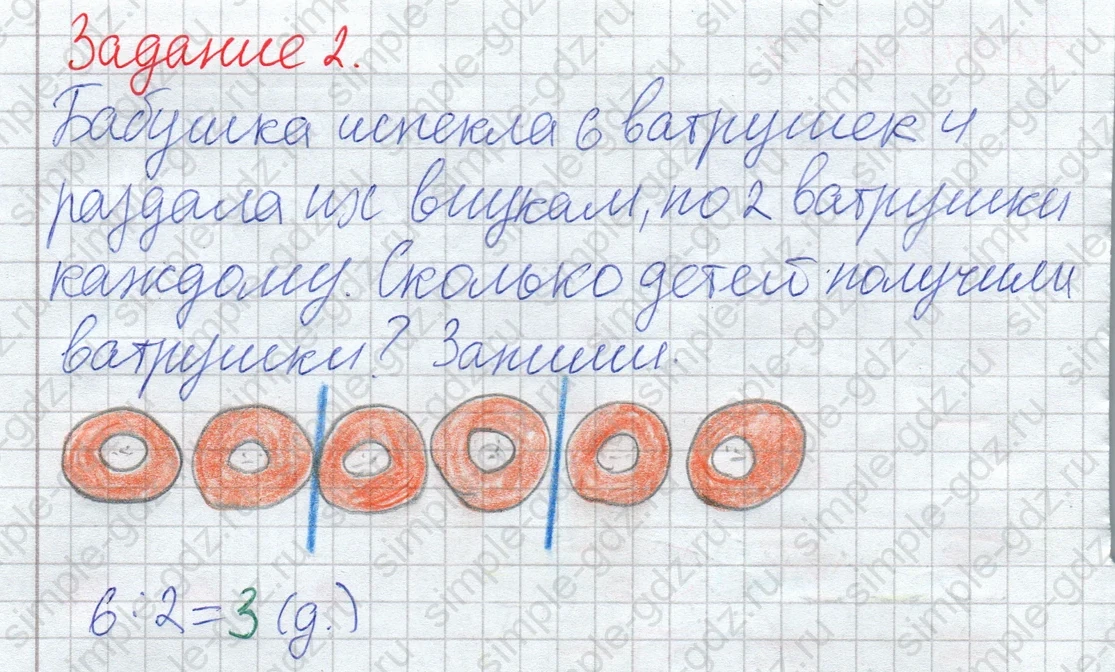 Задание 2.
Бабушка испекла 6 ватрушек и
раздала их внукам, по 2 ватрушки
каждому. Сколько детей получили
ватрушки? Запиши.
6:2=3 (д.)
simple-gdz.ru